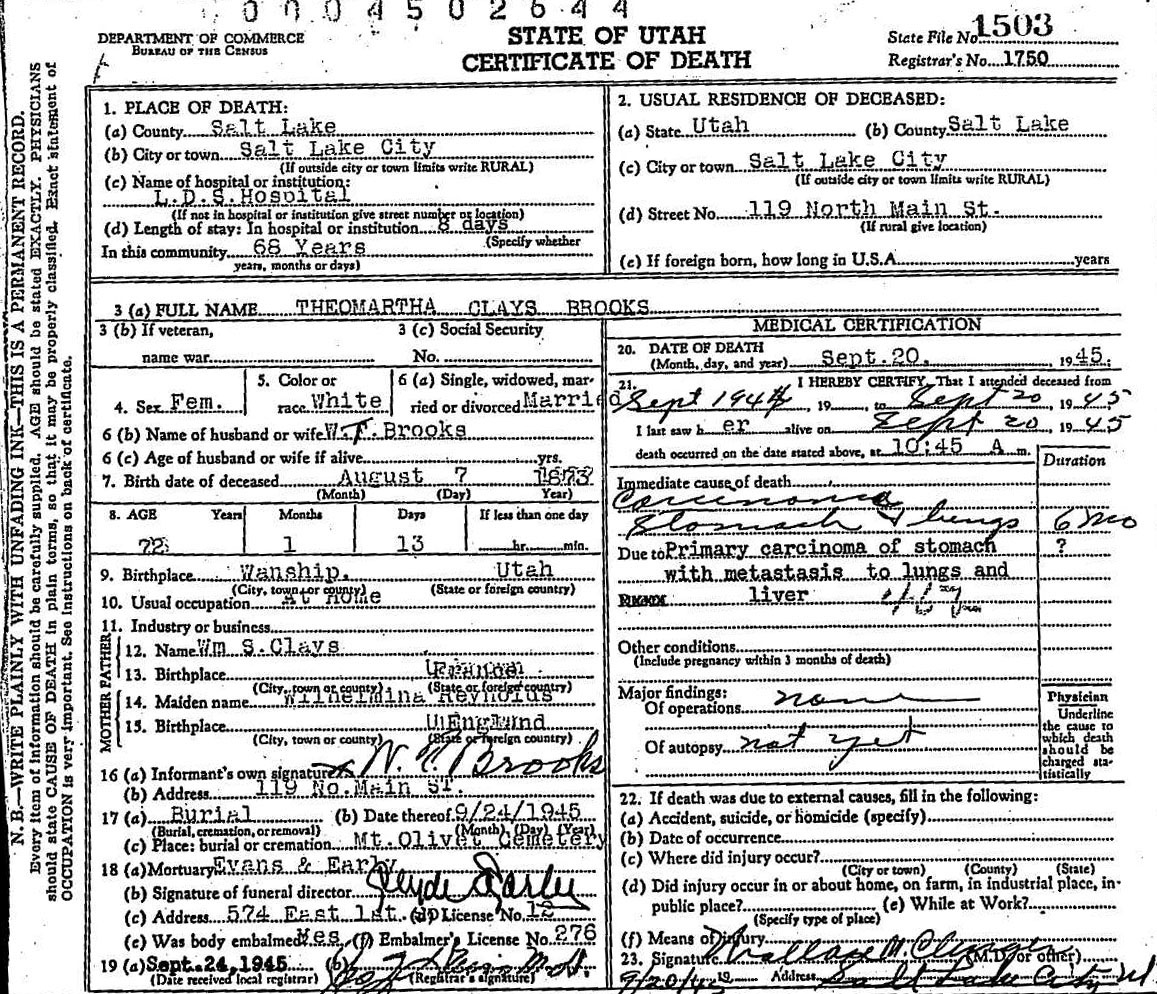 0004502644
DEPARTMENT OF COMMERCE
BUREAU OF THE CENSUS
STATE OF UTAH
CERTIFICATE OF DEATH
State File No. 1503
Registrar's No. 1750
N. B.—WRITE PLAINLY WITH UNFADING INK—THIS IS A PERMANENT RECORD.
Every item of information should be carefully supplied. AGE should be stated EXACTLY. PHYSICIANS
should state CAUSE OF DEATH in plain terms, so that it may be properly classified. Exact statement of
OCCUPATION is very important. See instructions on back of certificate.
1. PLACE OF DEATH:
(a) County Salt Lake
(b) City or town Salt Lake City
(If outside city or town limits write RURAL)
(c) Name of hospital or institution:
L.D.S.Hospital
(If not in hospital or institution give street number or location)
(d) Length of stay: In hospital or institution 8 days
(Specify whether
In this community 68 Years
years, months or days)
2. USUAL RESIDENCE OF DECEASED:
(a) State Utah (b) County Salt Lake
(c) City or town Salt Lake City
(If outside city or town limits write RURAL)
(d) Street No. 119 North Main St.
(If rural give location)
(e) If foreign born, how long in U.S.A. years
3 (a) FULL NAME THEOMARTHA CLAYS BROOKS
3 (b) If veteran,
name war
3 (c) Social Security
No.
4. Sex Fem.
5. Color or
race White
6 (a) Single, widowed, mar-
ried or divorced Married
6 (b) Name of husband or wife W.T.Brooks
6 (c) Age of husband or wife if alive yrs.
7. Birth date of deceased August 7 1873
(Month) (Day) Year)
8. AGE Years Months Days If less than one day
72 1 13 hr. min.
9. Birthplace Wanship, Utah
(City, town or county) (State or foreign country)
10. Usual occupation At Home
11. Industry or business
MOTHER FATHER
12. Name Wm S.Clays
13. Birthplace France
(City, town or county) (State or foreign country)
14. Maiden name Wilhelmina Reynolds
15. Birthplace England
(City, town or county) (State or foreign country)
16 (a) Informant's own signature x W. T. Brooks
(b) Address 119 No.Main ST.
17 (a) Burial (b) Date thereof 9/24/1945
(Burial, cremation, or removal) (Month) (Day) (Year)
(c) Place: burial or cremation Mt.Olivet Cemetery
18 (a) Mortuary Evans & Early
(b) Signature of funeral director Clyde Early
(c) Address 574 East 1st. (d) License No. 12
(e) Was body embalmed Yes (f) Embalmer's License No. 276
19 (a) Sept. 24, 1945 (b)
(Date received local registrar) (Registrar's signature)
MEDICAL CERTIFICATION
20. DATE OF DEATH
(Month, day, and year) Sept.20, 1945.
21. I HEREBY CERTIFY, That I attended deceased from
Sept 1944, 19 to Sept 20, 1945
I last saw h er alive on Sept 20, 1945
death occurred on the date stated above, at 10:45 A m.
Duration
Immediate cause of death
Carcinoma
Stomach & lungs 6 mo
Due to Primary carcinoma of stomach ?
with metastasis to lungs and
liver
Other conditions
(Include pregnancy within 3 months of death)
Major findings:
Of operations none
Of autopsy not yet
Physician
Underline
the cause to
which death
should be
charged sta-
tistically
22. If death was due to external causes, fill in the following:
(a) Accident, suicide, or homicide (specify)
(b) Date of occurrence
(c) Where did injury occur?
(City or town) (County) (State)
(d) Did injury occur in or about home, on farm, in industrial place, in-
public place? (e) While at Work?
(Specify type of place)
(f) Means of injury
23. Signature (M.D. or other)
9/20/45 19 Address Salt Lake City Ut